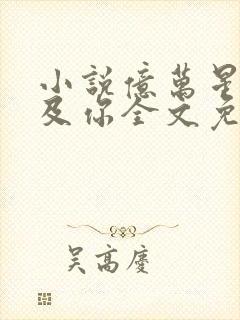 小說億萬星
及你全文免
吳高慶